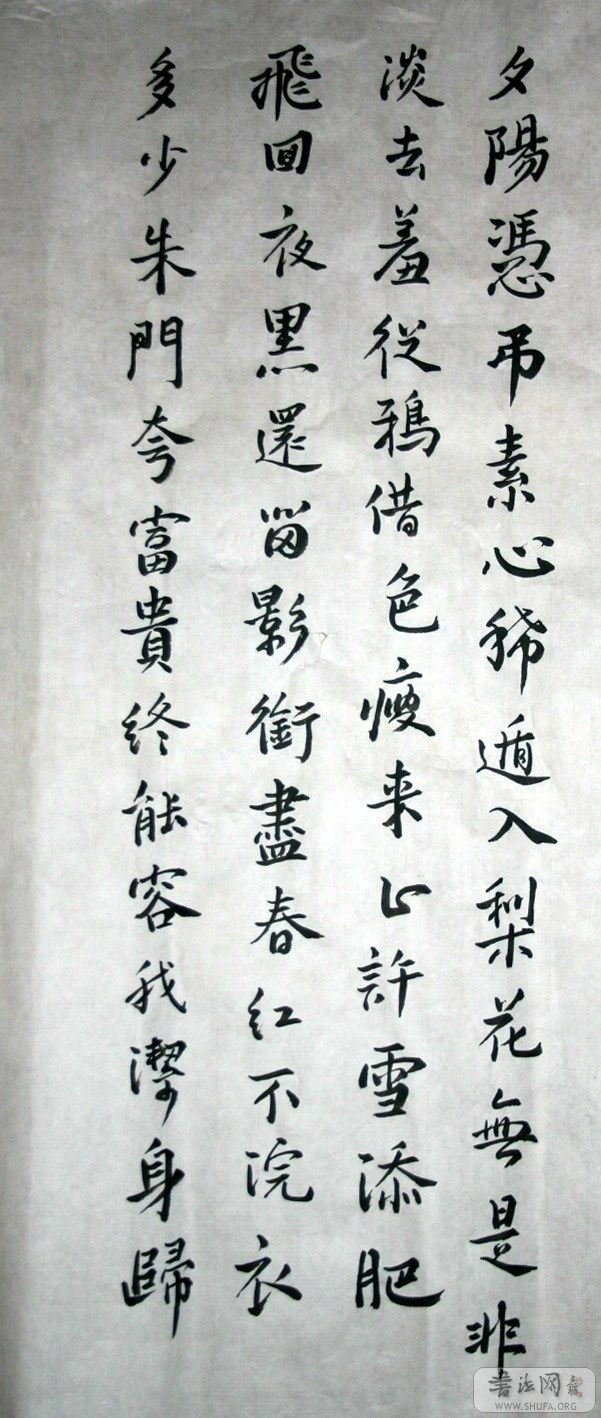 夕陽憑弔素心稀遁入梨花無是非
淡去羞從鴉借色瘦来止許雪添肥
飛回夜黑還留影銜盡春紅不浣衣
多少朱門夸富貴終能容我潔身歸
書法网
WWW.SHUFA.ORG